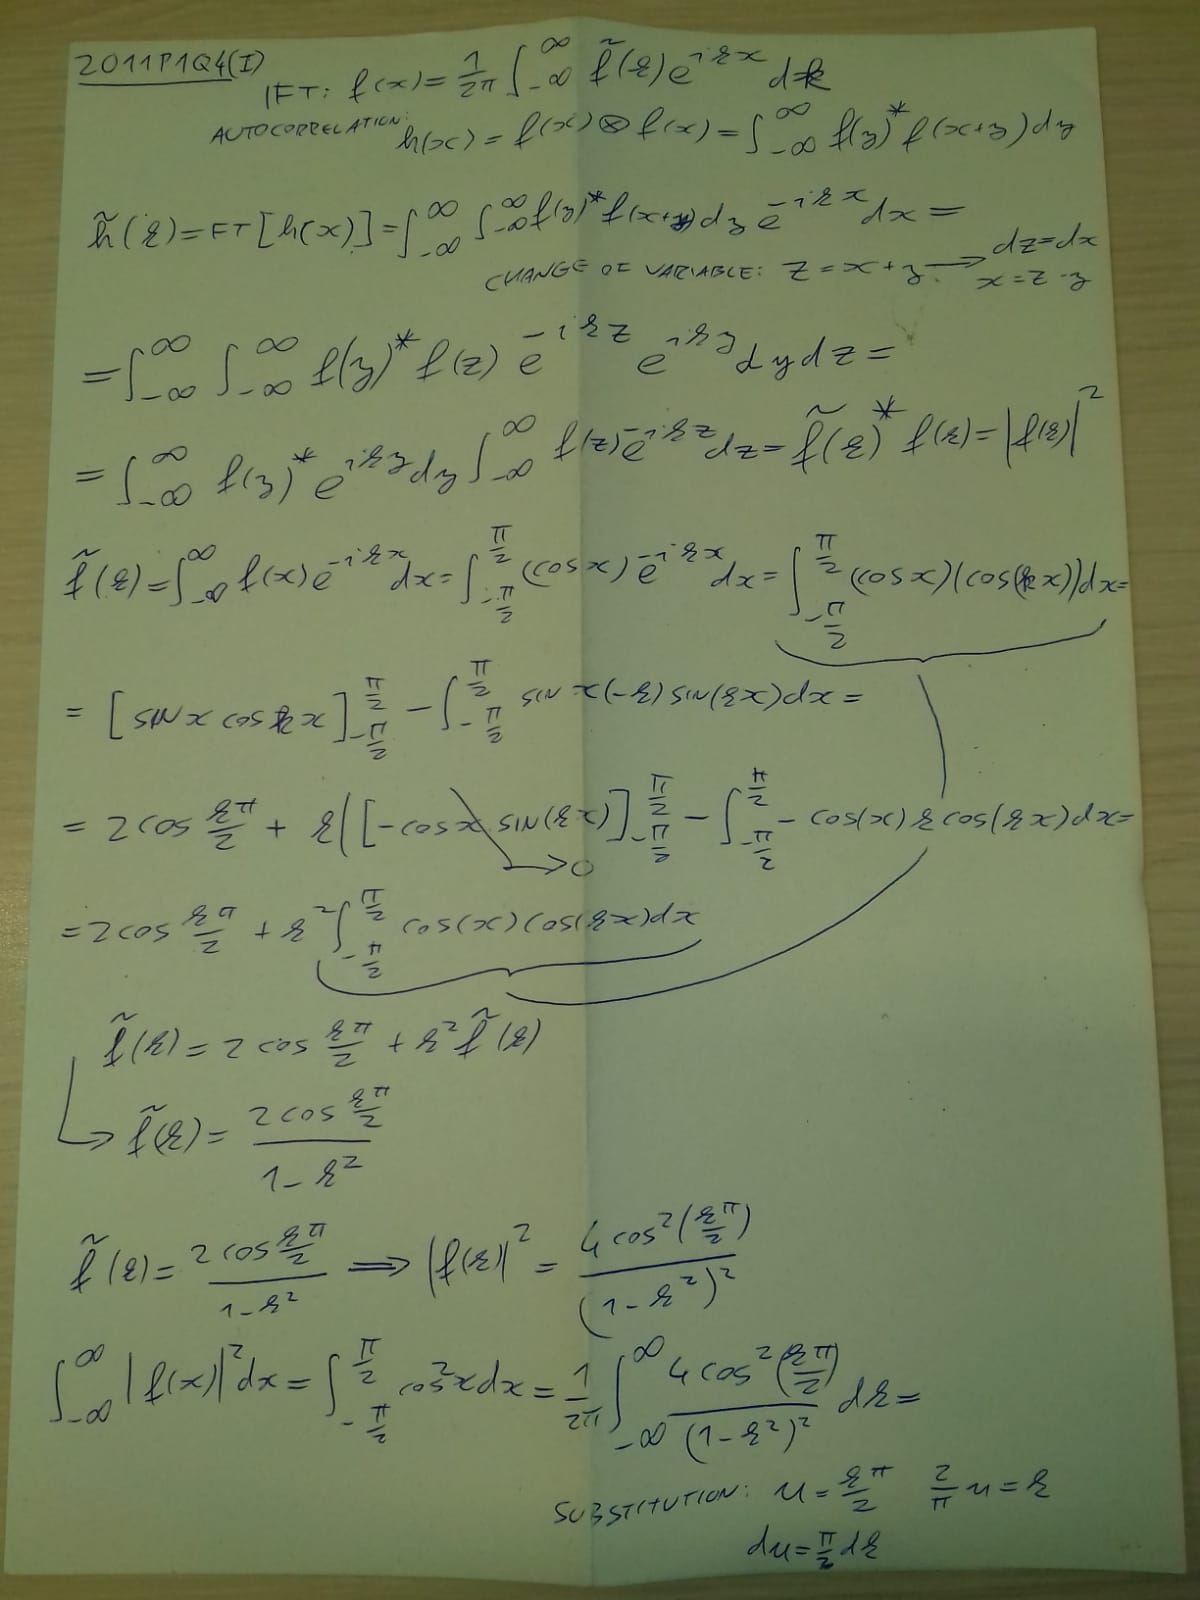 2011P1Q4(I)
IFT: f(x) = 1/2π ∫_{-∞}^{∞} f̃(k) e^{ikx} dk
AUTOCORRELATION: h(x) = f(x) ⊗ f(x) = ∫_{-∞}^{∞} f(y)* f(x+y) dy
h̃(k) = FT[h(x)] = ∫_{-∞}^{∞} ∫_{-∞}^{∞} f(y)* f(x+y) dy e^{-ikx} dx =
CHANGE OF VARIABLE: z = x+y → dz = dx
x = z-y
= ∫_{-∞}^{∞} ∫_{-∞}^{∞} f(y)* f(z) e^{-ikz} e^{iky} dy dz =
= ∫_{-∞}^{∞} f(y)* e^{iky} dy ∫_{-∞}^{∞} f(z) e^{-ikz} dz = f̃(k)* f(k) = |f(k)|²
f̃(k) = ∫_{-∞}^{∞} f(x) e^{-ikx} dx = ∫_{-π/2}^{π/2} (cos x) e^{-ikx} dx = ∫_{-π/2}^{π/2} (cos x)(cos(kx)) dx =
= [sin x cos kx]_{-π/2}^{π/2} - ∫_{-π/2}^{π/2} sin x (-k) sin(kx) dx =
= 2 cos kπ/2 + k([-cos x sin(kx)]_{-π/2}^{π/2} - ∫_{-π/2}^{π/2} - cos(x) k cos(kx) dx =
→ 0
= 2 cos kπ/2 + k² ∫_{-π/2}^{π/2} cos(x) cos(kx) dx
f̃(k) = 2 cos kπ/2 + k² f̃(k)
→ f̃(k) = (2 cos kπ/2)/(1-k²)
f̃(k) = (2 cos kπ/2)/(1-k²) ⟹ |f(k)|² = (4 cos²(kπ/2))/(1-k²)²
∫_{-∞}^{∞} |f(x)|² dx = ∫_{-π/2}^{π/2} cos² x dx = 1/2π ∫_{-∞}^{∞} (4 cos²(kπ/2))/(1-k²)² dk =
SUBSTITUTION: u = kπ/2 2/π u = k
du = π/2 dk